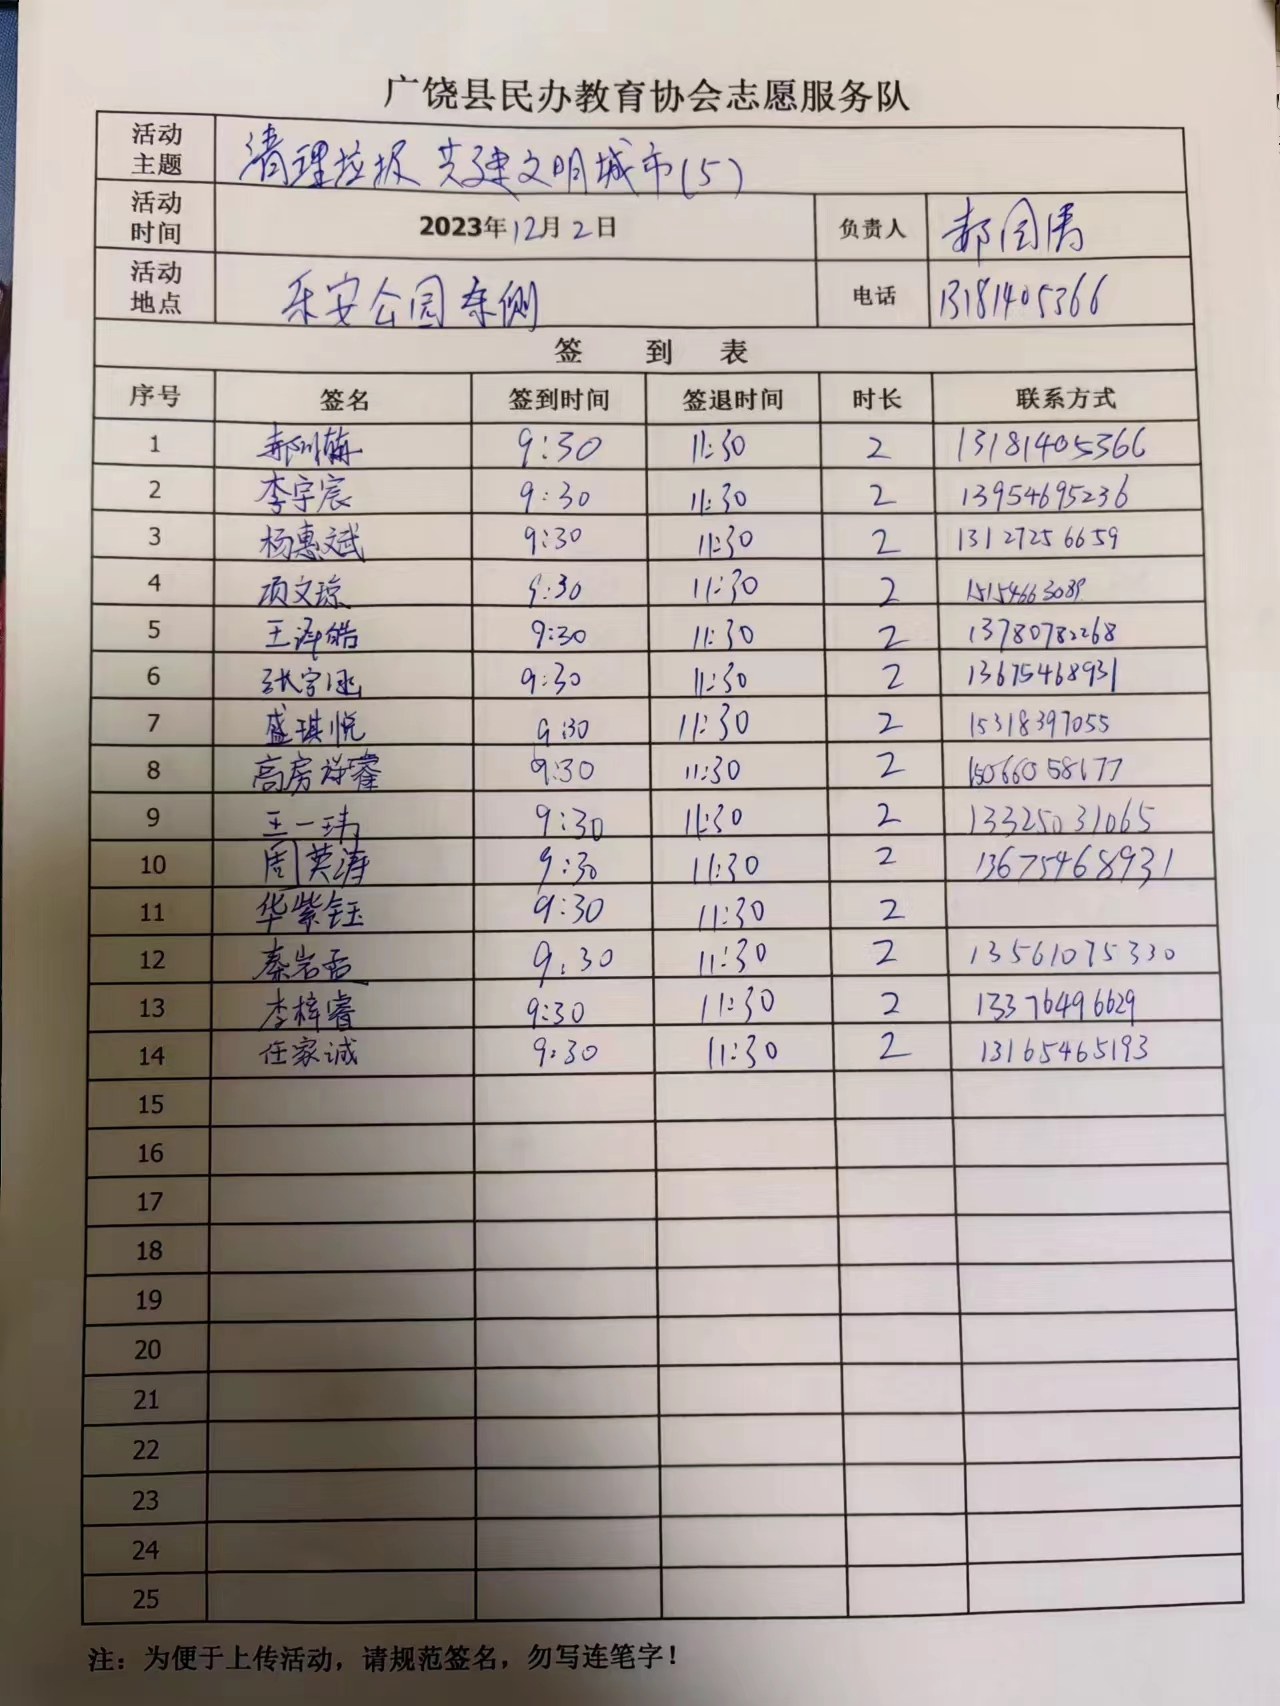 广饶县民办教育协会志愿服务队
活动主题 清理垃圾 共建文明城市(5)
活动时间 2023年12月2日 负责人 郝国勇
活动地点 乐安公园东侧 电话 13181405366
签 到 表
序号 签名 签到时间 签退时间 时长 联系方式
1 9:30 11:30 2 13181405366
2 李宇宸 9:30 11:30 2 13954695236
3 杨惠斌 9:30 11:30 2 13127256659
4 项文琼 9:30 11:30 2 15154663089
5 王泽皓 9:30 11:30 2 13780782268
6 张宇涵 9:30 11:30 2 13675468931
7 盛琪悦 9:30 11:30 2 15318397055
8 高房祥睿 9:30 11:30 2 15066058177
9 王一玮 9:30 11:30 2 13325031065
10 周英涛 9:30 11:30 2 13675468931
11 华紫钰 9:30 11:30 2
12 秦岩 9:30 11:30 2 13561075330
13 李梓睿 9:30 11:30 2 13376496629
14 任家诚 9:30 11:30 2 13165465193
15
16
17
18
19
20
21
22
23
24
25
注：为便于上传活动，请规范签名，勿写连笔字！